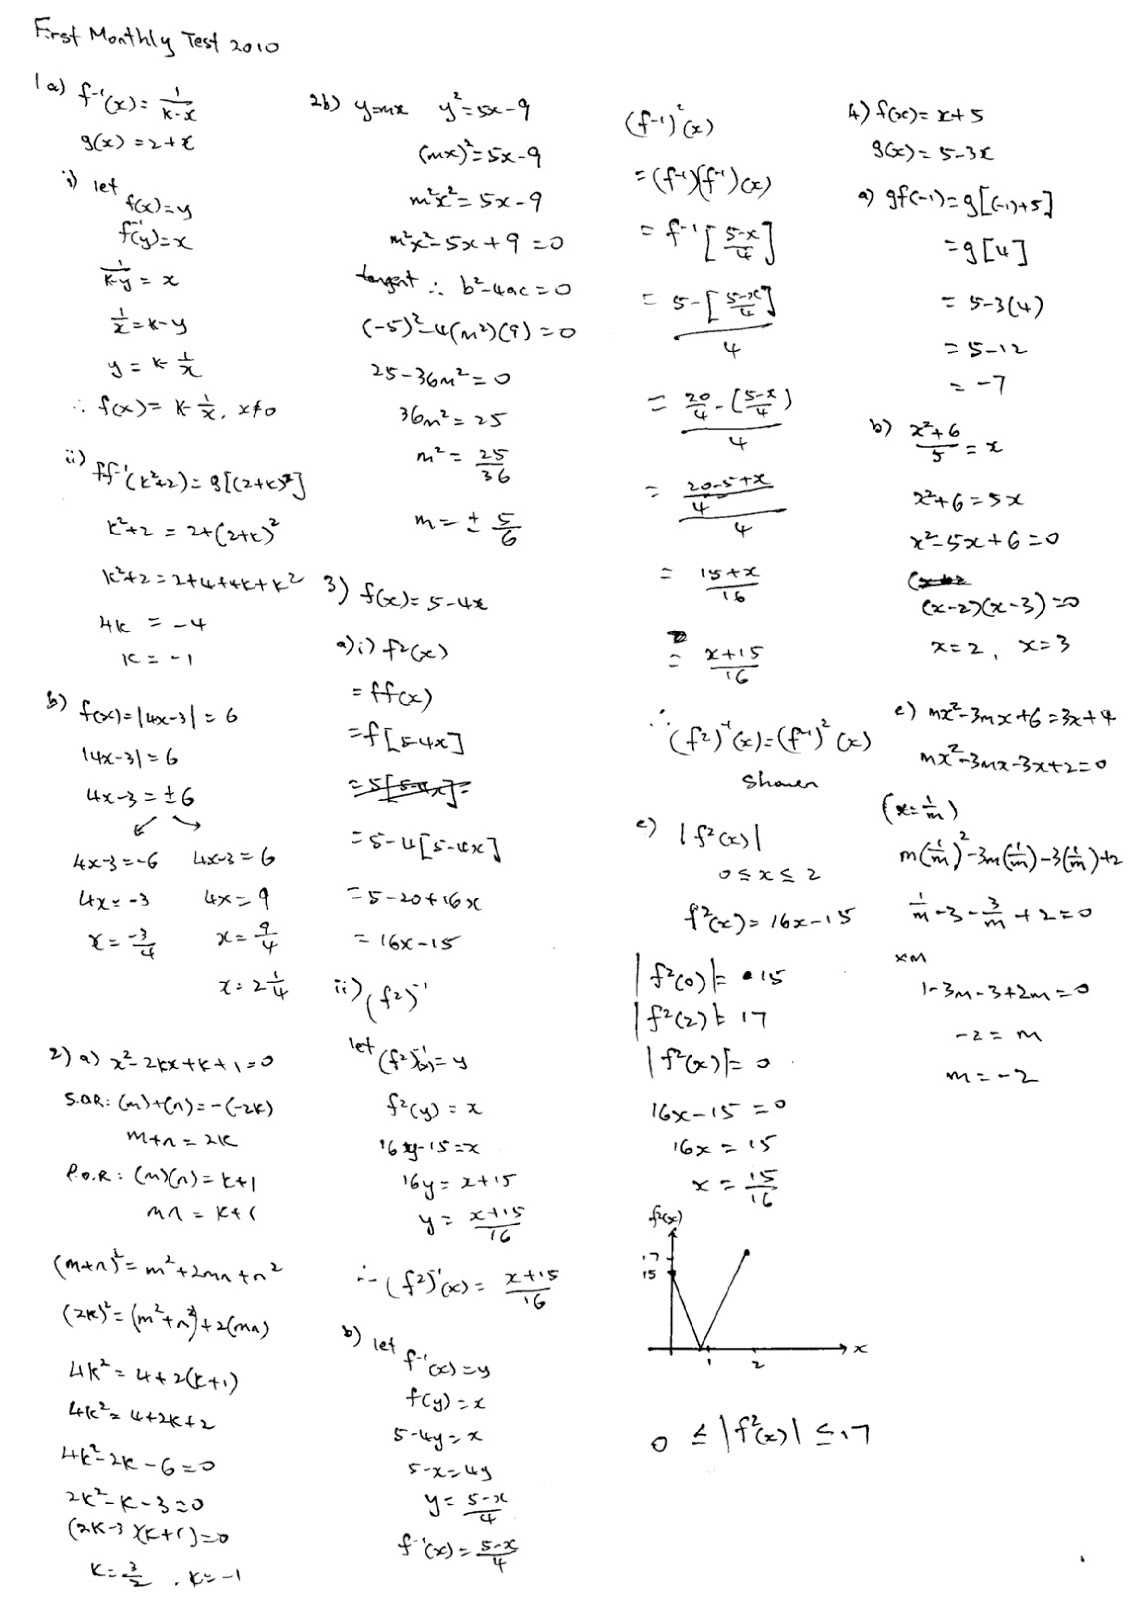 First Monthly Test 2010
1a) f⁻¹(x) = 1/(k-x)
g(x) = 2+x
i) let f(x)=y
f⁻¹(y)=x
1/(k-y) = x
1/x = k-y
y = k-1/x
∴ f(x) = k-1/x, x≠0
ii) ff⁻¹(k²+2) = g[(2+k)²]
k²+2 = 2+(2+k)²
k²+2 = 2+4+4k+k²
4k = -4
k = -1
b) f(x) = |4x-3| = 6
|4x-3| = 6
4x-3 = ±6
4x-3 = -6 4x-3 = 6
4x = -3 4x = 9
x = -3/4 x = 9/4
x = 2 1/4
2) a) x²-2kx+k+1=0
S.O.R: (m)+(n) = -(-2k)
m+n = 2k
P.O.R: (m)(n) = k+1
mn = k+1
(m+n)² = m²+2mn+n²
(2k)² = (m²+n²)+2(mn)
4k² = 4+2(k+1)
4k² = 4+2k+2
4k²-2k-6=0
2k²-k-3=0
(2k-3)(k+1)=0
k = 3/2, k = -1
2b) y=mx y²=5x-9
(mx)²=5x-9
m²x²=5x-9
m²x²-5x+9=0
tangent ∴ b²-4ac=0
(-5)²-4(m²)(9)=0
25-36m²=0
36m²=25
m² = 25/36
m = ± 5/6
3) f(x) = 5-4x
a) i) f²(x)
= ff(x)
= f[5-4x]
= 5-4[5-4x]
= 5-20+16x
= 16x-15
ii) (f²)⁻¹
let (f²)⁻¹(x) = y
f²(y) = x
16y-15=x
16y = x+15
y = (x+15)/16
∴ (f²)⁻¹(x) = (x+15)/16
b) let f⁻¹(x)=y
f(y)=x
5-4y=x
5-x=4y
y = (5-x)/4
f⁻¹(x) = (5-x)/4
(f⁻¹)²(x)
= (f⁻¹)(f⁻¹)(x)
= f⁻¹[(5-x)/4]
= (5-[(5-x)/4])/4
= (20/4-((5-x)/4))/4
= ((20-5+x)/4)/4
= (15+x)/16
= (x+15)/16
∴ (f²)⁻¹(x) = (f⁻¹)²(x)
Shown
c) |f²(x)|
0≤x≤2
f²(x) = 16x-15
|f²(0)| = 15
|f²(2)| = 17
|f²(x)| = 0
16x-15=0
16x = 15
x = 15/16
f²(x)
17
15
x
1
2
0 ≤ |f²(x)| ≤ 17
4) f(x) = x+5
g(x) = 5-3x
a) gf(-1) = g[(-1)+5]
= g[4]
= 5-3(4)
= 5-12
= -7
b) (x²+6)/5 = x
x²+6=5x
x²-5x+6=0
(x-2)(x-3)=0
x=2, x=3
c) mx²-3mx+6=3x+4
mx²-3mx-3x+2=0
(x=1/m)
m(1/m)²-3m(1/m)-3(1/m)+2
1/m-3-3/m+2=0
xm
1-3m-3+2m=0
-2=m
m=-2